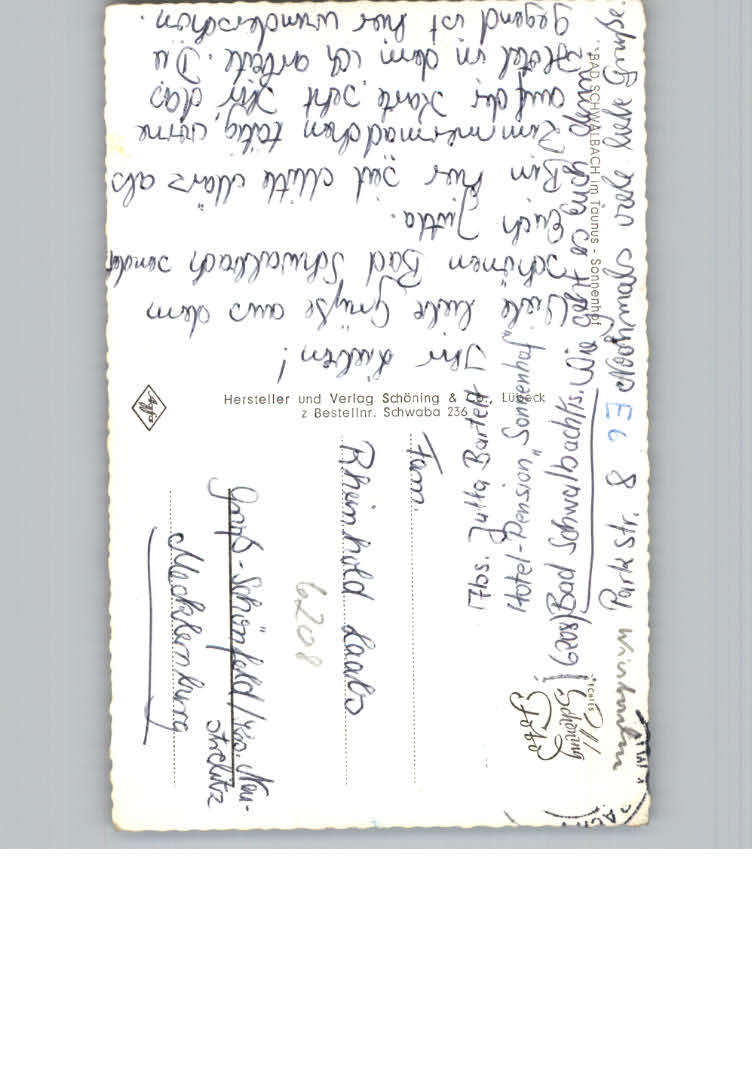 Ihr Lieben!
Viele liebe Grüße aus dem
schönen Bad Schwalbach sendet
Euch Jutta.
Bin hier seit Mitte März als
Zimmermädchen tätig, vorne
auf der Karte seht Ihr das
Hotel in dem ich arbeite. Die
Gegend ist hier wunderschön.
BAD SCHWALBACH im Taunus - Sonnenhof
Hersteller und Verlag Schöning & Co., Lübeck
z Bestellnr. Schwaba 236
Agfa
Abs. Jutta Bartelt
Hotel-Pension „Sonnenhof"
(6208) Bad Schwalbach/Ts.
Parkstr. 8
Wie
Fam.
Rheinhold Laabs
6208
Groß-Schönfeld/Krs. Neu-
strelitz
Mecklenburg
Echtes
Schöning
Foto